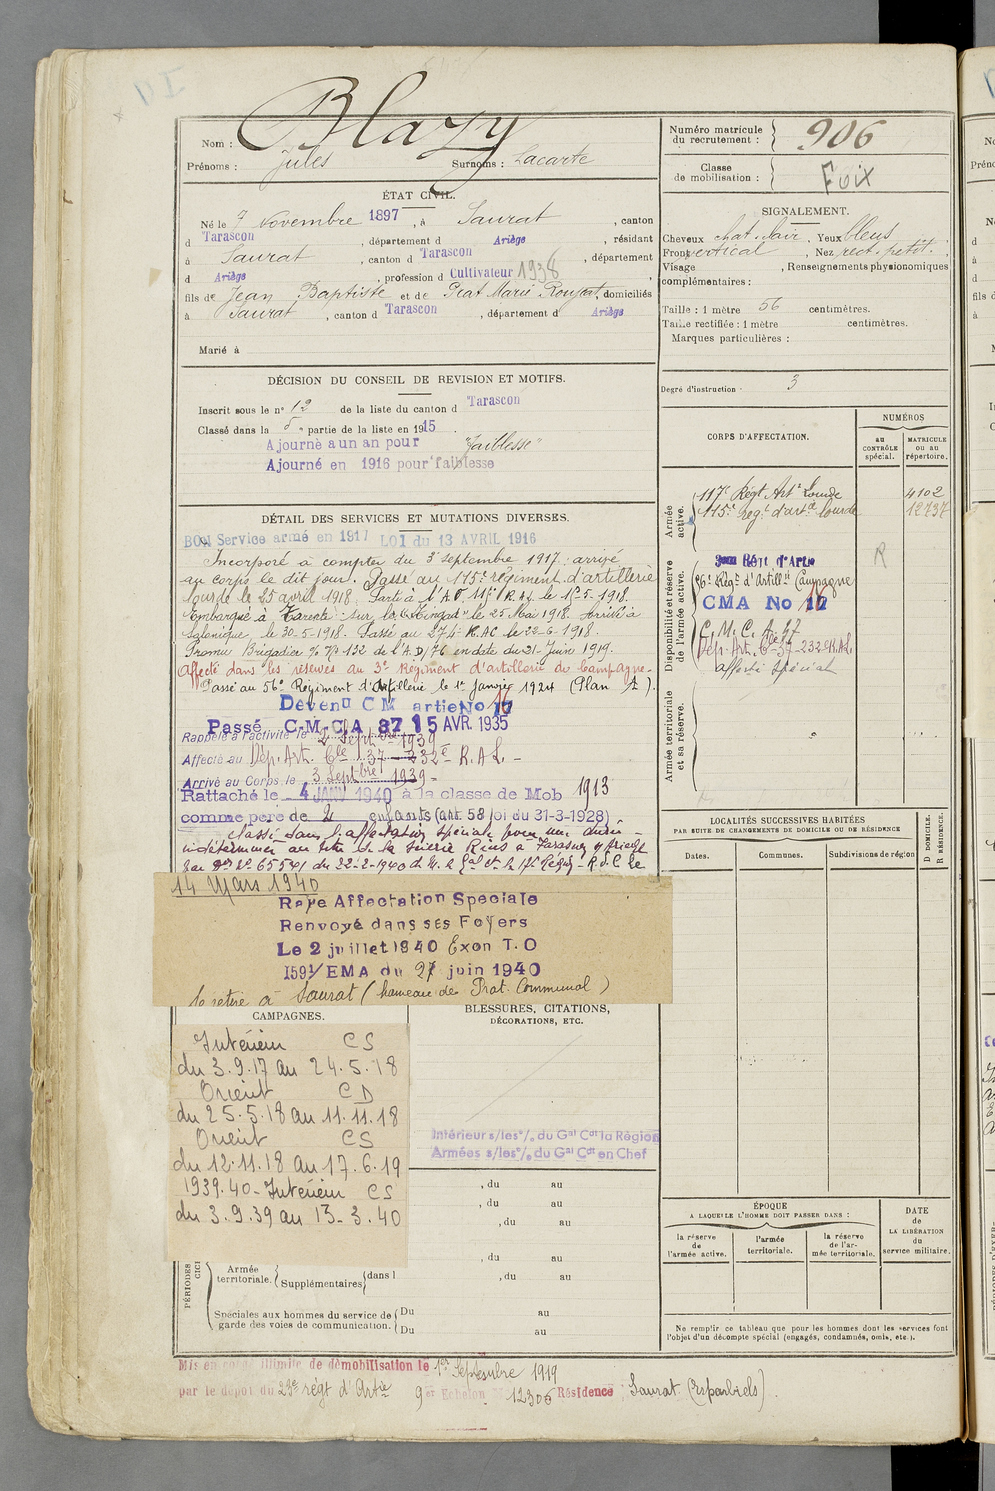 Nom : Blazy
Prénoms : Jules Surnoms : Lacarte
Numéro matricule du recrutement : 906
Classe de mobilisation : Foix
ÉTAT CIVIL.
Né le 7 Novembre 1897, à Saurat, canton
d Tarascon, département d Ariège, résidant
à Saurat, canton d Tarascon, département
d Ariège, profession d Cultivateur 1938
fils de Jean Baptiste et de Prat Marie, domiciliés
à Saurat, canton d Tarascon, département d Ariège
Marié à
SIGNALEMENT.
Cheveux chat. clair, Yeux bleus
Front vertical, Nez rect. petit.
Visage , Renseignements physionomiques
complémentaires :
Taille : 1 mètre 56 centimètres.
Taille rectifiée : 1 mètre centimètres.
Marques particulières :
Degré d'instruction 3
DÉCISION DU CONSEIL DE REVISION ET MOTIFS.
Inscrit sous le n° 12 de la liste du canton d Tarascon
Classé dans la 5e partie de la liste en 1915.
Ajourné a un an pour "faiblesse"
Ajourné en 1916 pour faiblesse
CORPS D'AFFECTATION.
NUMÉROS
AU CONTRÔLE spécial.
MATRICULE OU AU répertoire.
Armée active.
117e Régt Arte Lourde 4102
115e Regt d'arte lourde 12737
Disponibilité et réserve de l'armée active.
Régt d'Artie
56e Régt d'Artillie Campagne
CMA No 17
16
C.M.C.A 37
Dép. Art. Cle 37-232e R.A.L.
affecté spécial
R
Armée territoriale et sa réserve.
DÉTAIL DES SERVICES ET MUTATIONS DIVERSES.
BON Service armé en 1917 LOI du 13 AVRIL 1916
Incorporé à compter du 3 septembre 1917, arrivé
au corps le dit jour. Passé au 115e régiment d'artillerie
lourde le 25 avril 1918. Parti à l'A O 115e R.A.L. le 1er-5-1918.
Embarqué à Tarente sur le le 25 Mai 1918. Arrivé à
Salonique, le 30-5-1918. Passé au 274e R.AC le 22-6-1918.
Promu Brigadier 132 de l'A.D/76 en date du 21 Juin 1919.
Affecté dans les réserves au 3e Régiment d'artillerie de Campagne.
Passé au 56e Régiment d'Artillerie le 1er Janvier 1924 (Plan A).
Devenu CM artie No 17
16
Passé C.M.C.A 37 15 AVR. 1935
Rappelé à l'activité le 2 Septbre 1939
Affecté au Dép. Art. Cle 37-232e R.A.L.-
Arrivé au Corps le 3 Septbre 1939-
Rattaché le 4 JANV 1940 à la classe de Mob 1913
comme père de 2 enfants (art 58 loi du 31-3-1928)
Classé dans l'affectation spéciale pour une durée
indéterminée au titre de la à Tarascon s/ Ariège
du 22-2-1940
14 Mars 1940
Raye Affectation Speciale
Renvoyé dans ses Foyers
Le 2 juillet 1940 Exon T.O
1591/EMA du 27 juin 1940
Se retire à Saurat (hameau de Prat Communal)
LOCALITÉS SUCCESSIVES HABITÉES
PAR SUITE DE CHANGEMENTS DE DOMICILE OU DE RÉSIDENCE
Dates. Communes. Subdivisions de région
D DOMICILE. R RÉSIDENCE.
CAMPAGNES.
Intérieur CS
du 3.9.17 au 24.5.18
Orient CD
du 25.5.18 au 11.11.18
Orient CS
du 12.11.18 au 17.6.19
1939.40-Intérieur CS
du 3.9.39 au 13-3.40
BLESSURES, CITATIONS,
DÉCORATIONS, ETC.
Intérieur s/les°/. du Gal Cdt la Région
Armées s/les°/. du Gal Cdt en Chef
, du au
, du au
, du au
, du au
Armée territoriale. Supplémentaires dans l , du au
Spéciales aux hommes du service de garde des voies de communication. Du au
Du au
ÉPOQUE
A LAQUELLE L'HOMME DOIT PASSER DANS :
la réserve de l'armée active.
l'armée territoriale.
la réserve de l'armée territoriale.
DATE de LA LIBÉRATION du service militaire.
Ne remplir ce tableau que pour les hommes dont les services font
l'objet d'un décompte spécial (engagés, condamnés, omis, etc.).
Mis en congé illimité de démobilisation le 1er Septembre 1919
par le dépôt du 23e régt d'Artie 9er Echelon N° 12306 Résidence : Saurat (Esparbiels).